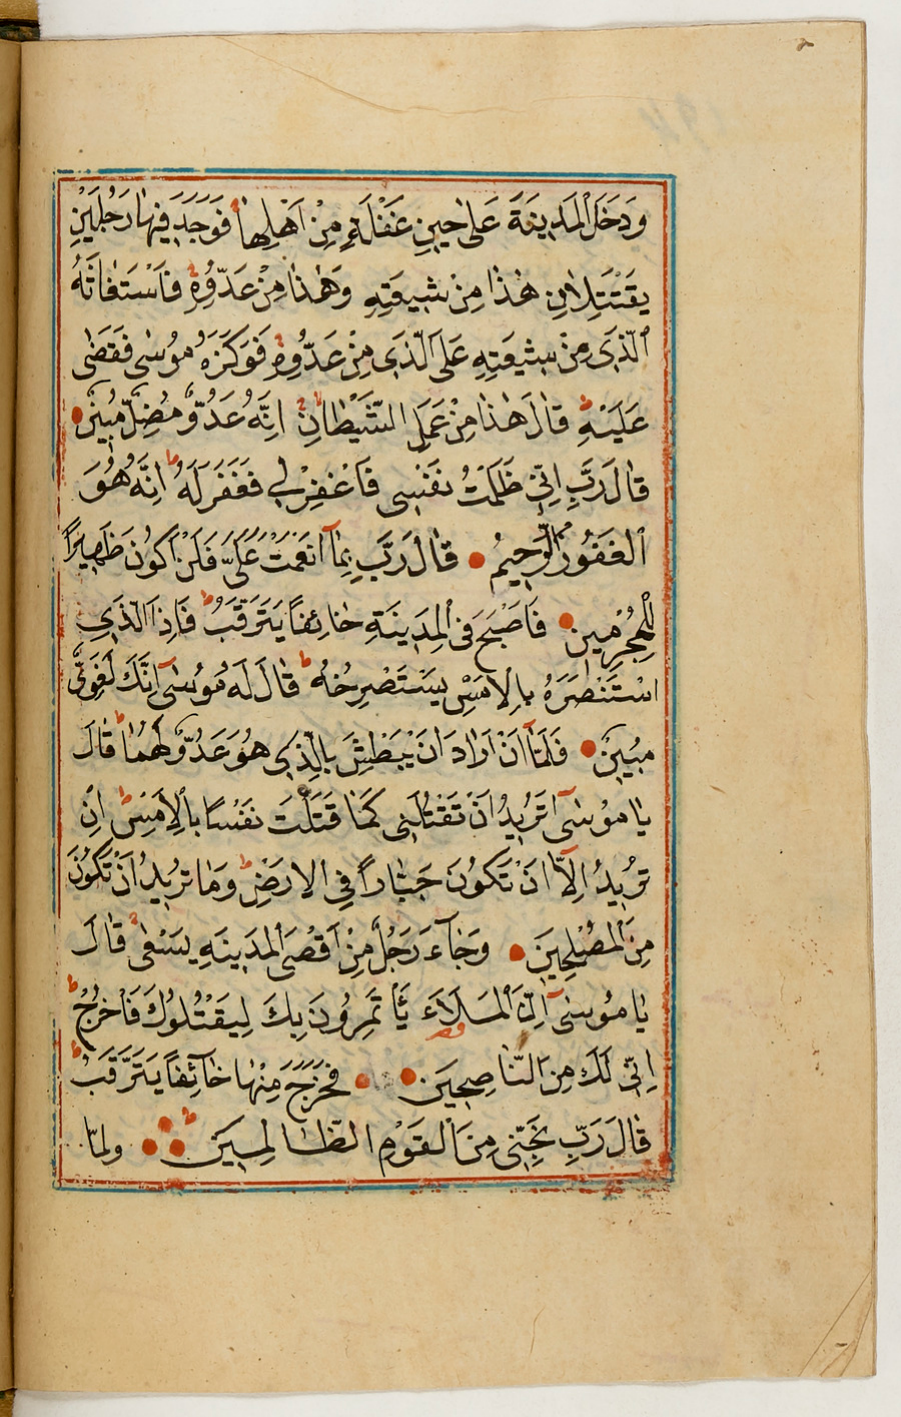 وَدَخَلَ الْمَدِينَةَ عَلٰى حِينِ غَفْلَةٍ مِنْ اَهْلِهَا فَوَجَدَ فِيهَا رَجُلَيْنِ
يَقْتَتِلَانِ هٰذَا مِنْ شِيعَتِهِ وَهٰذَا مِنْ عَدُوِّهِ فَاسْتَغَاثَهُ
الَّذِى مِنْ شِيعَتِهِ عَلَى الَّذِى مِنْ عَدُوِّهِ فَوَكَزَهُ مُوسٰى فَقَضٰى
عَلَيْهِ قَالَ هٰذَا مِنْ عَمَلِ الشَّيْطَانِ اِنَّهُ عَدُوٌّ مُضِلٌّ مُبِينٌ
قَالَ رَبِّ اِنِّى ظَلَمْتُ نَفْسِى فَاغْفِرْ لِى فَغَفَرَ لَهُ اِنَّهُ هُوَ
الْغَفُورُ الرَّحِيمُ قَالَ رَبِّ بِمَا اَنْعَمْتَ عَلَىَّ فَلَنْ اَكُونَ ظَهِيرًا
لِلْمُجْرِمِينَ فَاَصْبَحَ فِى الْمَدِينَةِ خَائِفًا يَتَرَقَّبُ فَاِذَا الَّذِى
اسْتَنْصَرَهُ بِالْاَمْسِ يَسْتَصْرِخُهُ قَالَ لَهُ مُوسٰى اِنَّكَ لَغَوِىٌّ
مُبِينٌ فَلَمَّا اَنْ اَرَادَ اَنْ يَبْطِشَ بِالَّذِى هُوَ عَدُوٌّ لَهُمَا قَالَ
يَا مُوسٰى اَتُرِيدُ اَنْ تَقْتُلَنِى كَمَا قَتَلْتَ نَفْسًا بِالْاَمْسِ اِنْ
تُرِيدُ اِلَّا اَنْ تَكُونَ جَبَّارًا فِى الْاَرْضِ وَمَا تُرِيدُ اَنْ تَكُونَ
مِنَ الْمُصْلِحِينَ وَجَاءَ رَجُلٌ مِنْ اَقْصَى الْمَدِينَةِ يَسْعٰى قَالَ
يَا مُوسٰى اِنَّ الْمَلَاَ يَأْتَمِرُونَ بِكَ لِيَقْتُلُوكَ فَاخْرُجْ
اِنِّى لَكَ مِنَ النَّاصِحِينَ فَخَرَجَ مِنْهَا خَائِفًا يَتَرَقَّبُ
قَالَ رَبِّ نَجِّنِى مِنَ الْقَوْمِ الظَّالِمِينَ وَلَمَّا